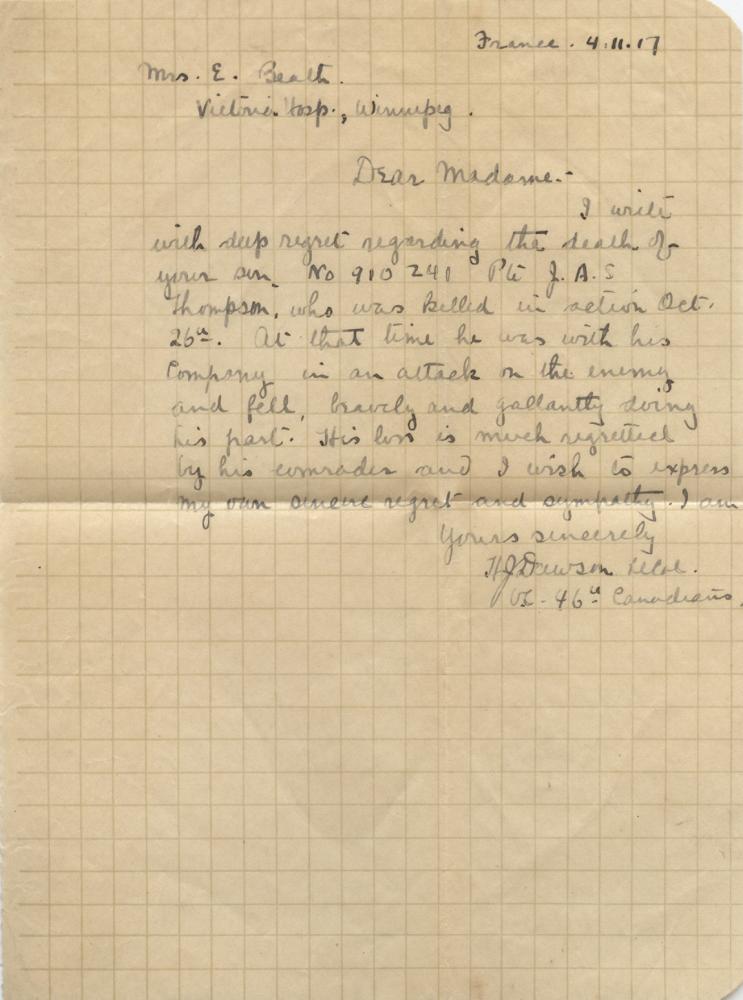 France. 4.11.17
Mrs. E. Beath.
Victoria Hosp., Winnipeg.
Dear Madame.-
I write
with deep regret regarding the death of
your son, No 910241 Pte J. A. S
Thompson, who was killed in action Oct.
26th. At that time he was with his
Company in an attack on the enemy
and fell, bravely and gallantly doing
his part. His loss is much regretted
by his comrades and I wish to express
my own sincere regret and sympathy. I am
Yours sincerely
HJDawson
46th Canadians.